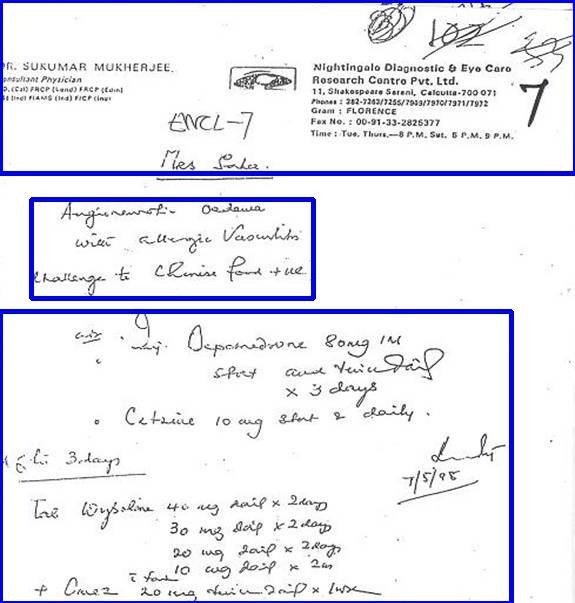 7
DR. SUKUMAR MUKHERJEE.
Consultant Physician
D. (Cal) FRCP (Lond) FRCP (Edin)
FIAMS (Ind) FICP (Ind)
Nightingale Diagnostic & Eye Care
Research Centre Pvt. Ltd.
11, Shakespeare Sarani, Calcutta-700 071
Phones : 282-7263/7255/7969/7970/7971/7972
Gram : FLORENCE
Fax No. : 00-91-33-2825377
Time : Tue, Thurs.—8 P.M. Sat. 5 P.M. 9 P.M.
ENCL-7
Mrs Saha.
Angioneurotic Oedema
with allergic Vasculitis
challenge to Chinese food +ve
Inj. Depomedrone 80mg IM
stat and twice daily
x 3 days
Cetzine 10 mg stat & daily.
3 days
7/5/98
Tab Wysolone 40 mg daily x 2days
30 mg daily x 2days
20 mg daily x 2days
10 mg daily x
+ 20 mg twice daily x